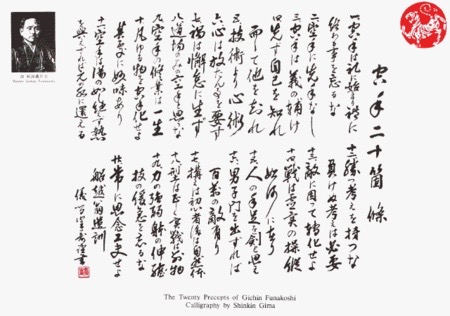 空手二十箇條
一空手は礼に始まり礼に
終る事を忘るな
二空手に先手なし
三空手は義の輔け
四先づ自己を知れ
而して他を知れ
五技術より心術
六心は放たん事を要す
七禍は懈怠に生ず
八道場のみの空手と思ふな
九空手の修業は一生
十凡ゆる物を空手化せよ
其処に妙味あり
十一空手は湯の如し絶えず熱
を与えざれば元の水に還える
十二勝つ考えを持つな
負けぬ考えは必要
十三敵に因って轉化せよ
十四戦は虚実の操縦
如何に在り
十五人の手足を剣と思え
十六男子門を出づれば
百万の敵有り
十七構えは初心者後は自然体
十八型は正しく実戦は別物
十九力の強弱体の伸縮
技の緩急を忘るな
二十常に思念工夫せよ
船越翁遺訓
儀間真謹書
The Twenty Precepts of Gichin Funakoshi
Calligraphy by Shinkin Gima